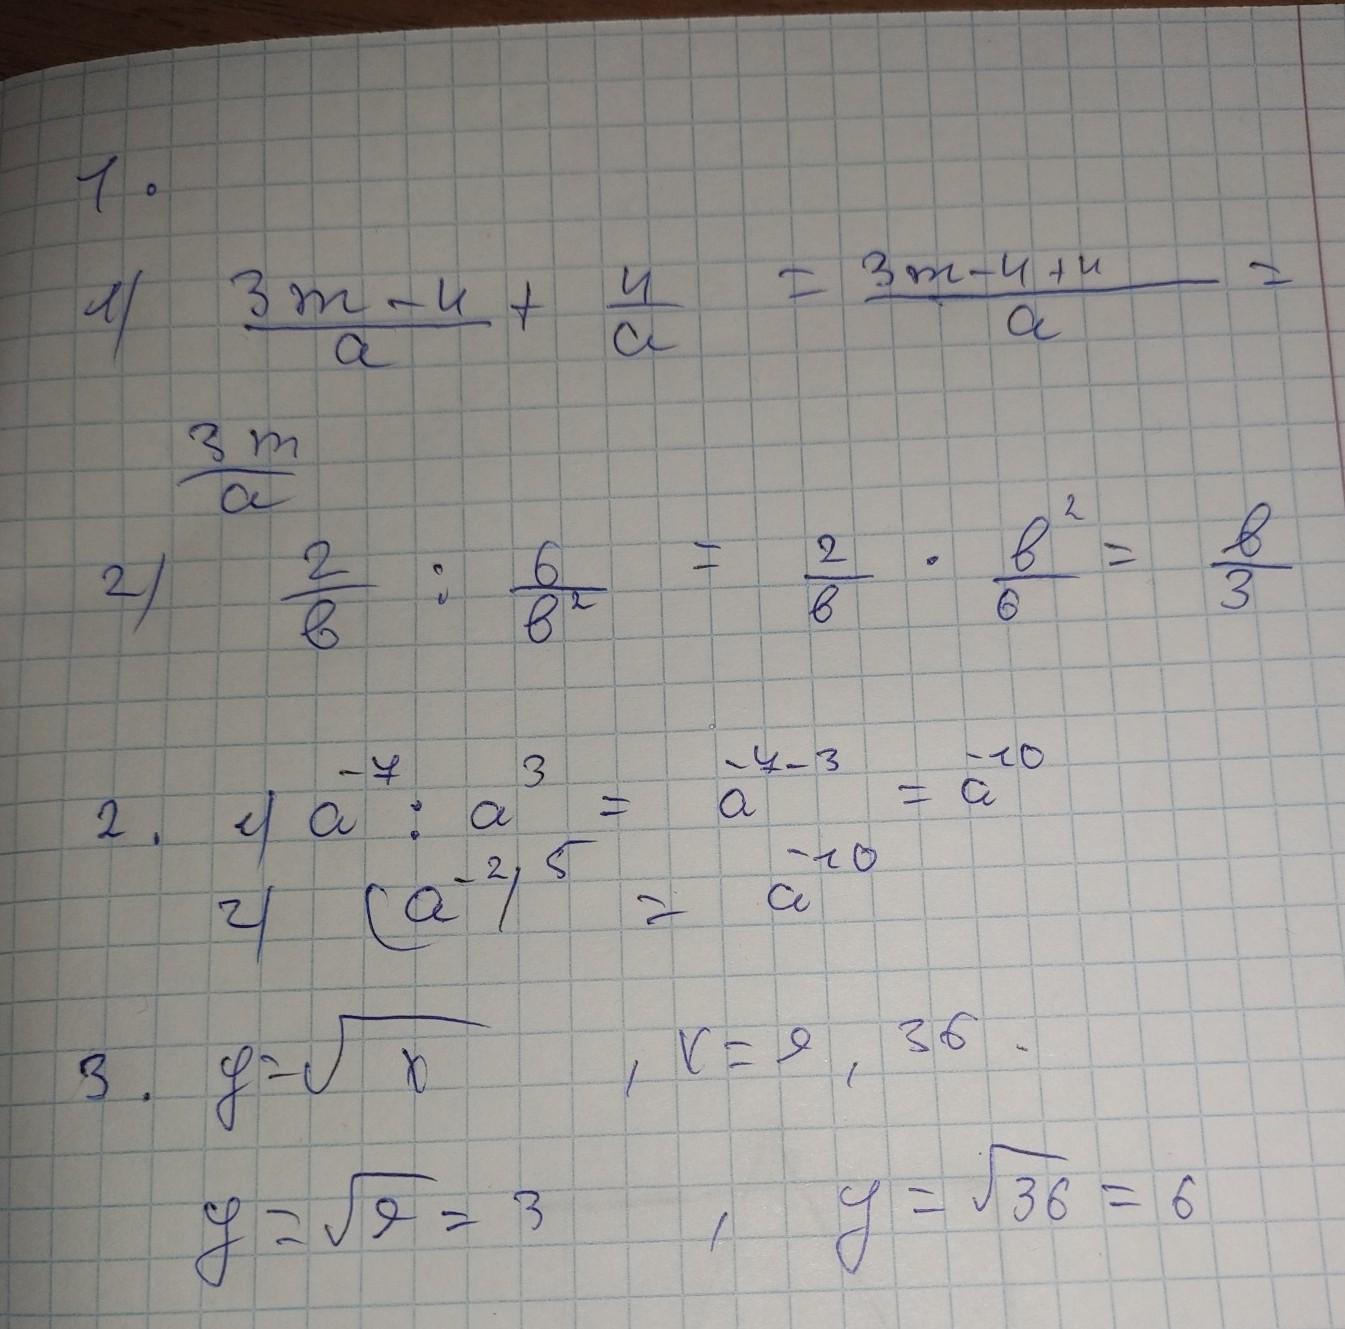 1.
1) (3m-4)/a + 4/a = (3m-4+4)/a =
3m/a
2) 2/в : 6/в² = 2/в · в²/6 = в/3
2. 1) a⁻⁷ : a³ = a⁻⁷⁻³ = a⁻¹⁰
2) (a⁻²)⁵ = a⁻¹⁰
3. y=√x , x=9, 36.
y=√9=3 , y=√36=6